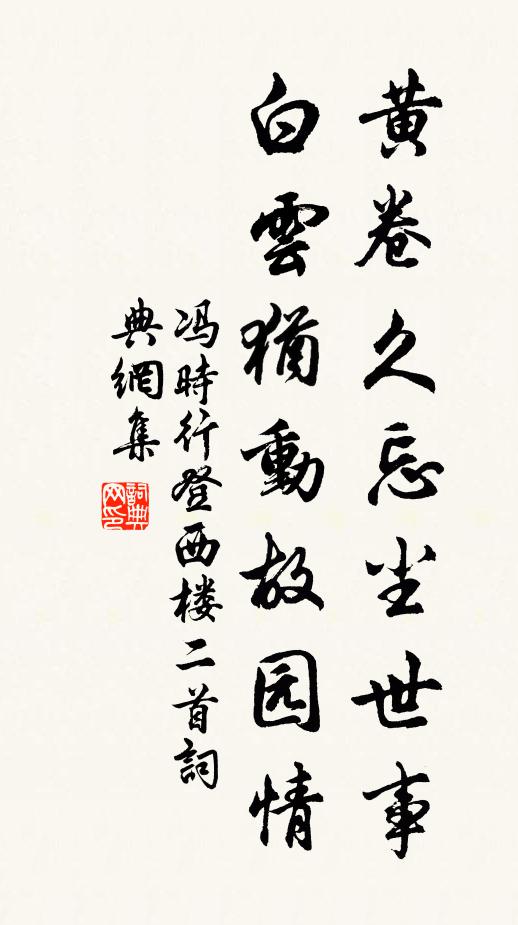 黄卷久忘尘世事
白雲猶動故园情
冯時行登西楼二首詞
典網集
詞典网印